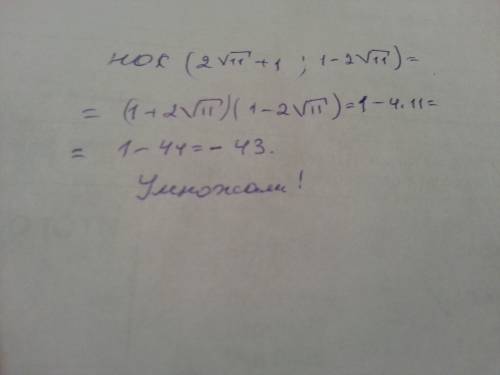 НОК (2√11+1 ; 1-2√11)=
= (1+2√11)(1-2√11)=1-4.11=
= 1-44=-43.
Умножали!